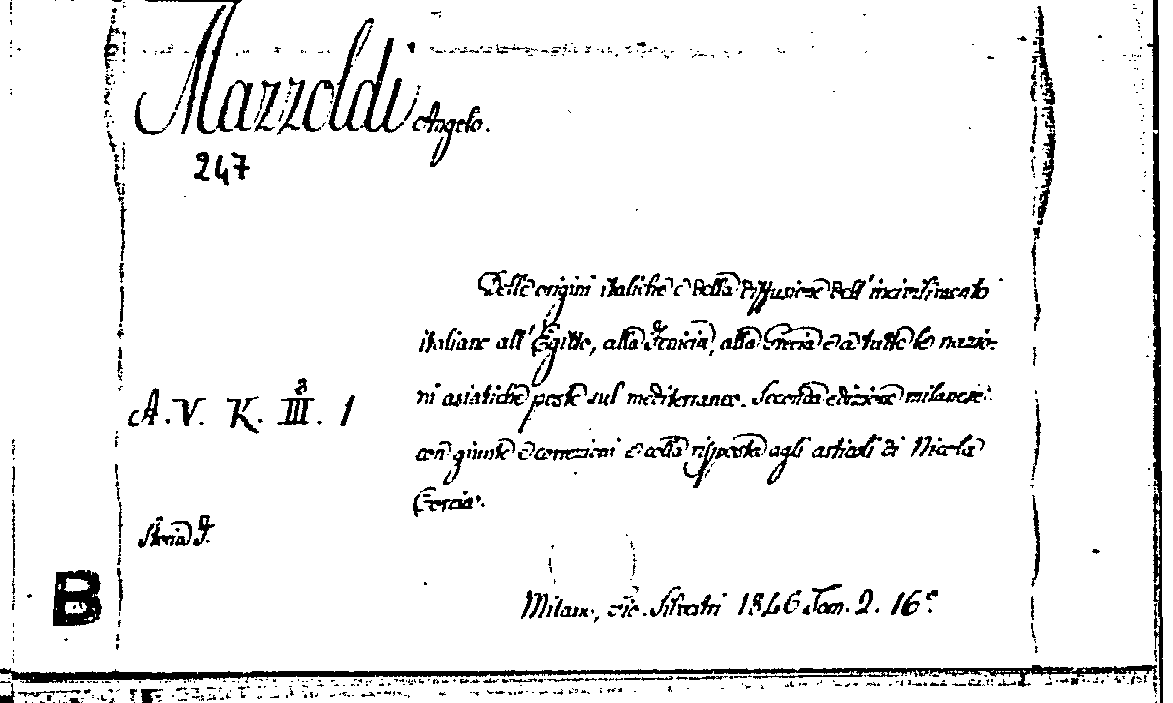 Mazzoldi Angelo.
247
Delle origini italiche e della diffusione dell'incivilimento
italiano all'Egitto, alla Fenicia, alla Grecia e a tutte le nazio-
ni asiatiche poste sul mediterraneo. Seconda edizione milanese
A. V. K. III. 8 1
con giunte e correzioni e colla risposta agli articoli di Nicola
Storia
B
Milano, Silvestri 1846 Tom. 2. 16°